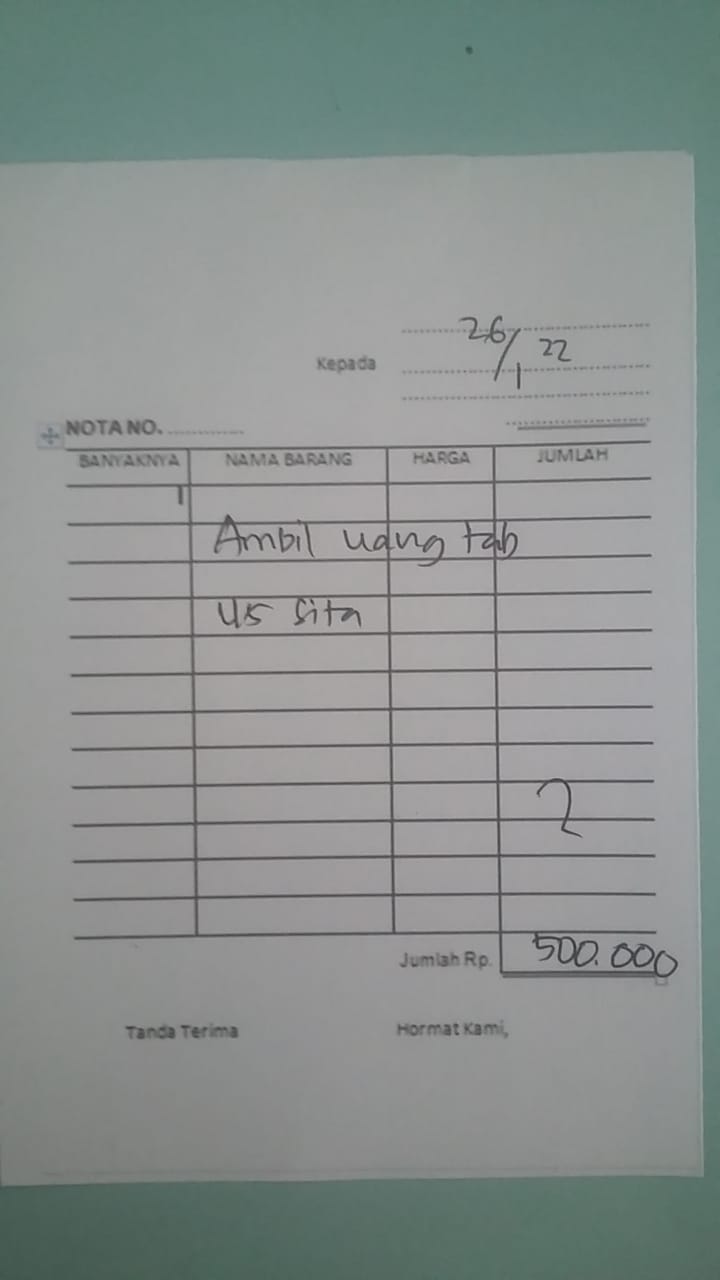 26/1 22
Kepada
NOTA NO. ..............
BANYAKNYA NAMA BARANG HARGA JUMLAH
Ambil uang tab
US Sita
2
Jumlah Rp. 500.000
Tanda Terima Hormat Kami,